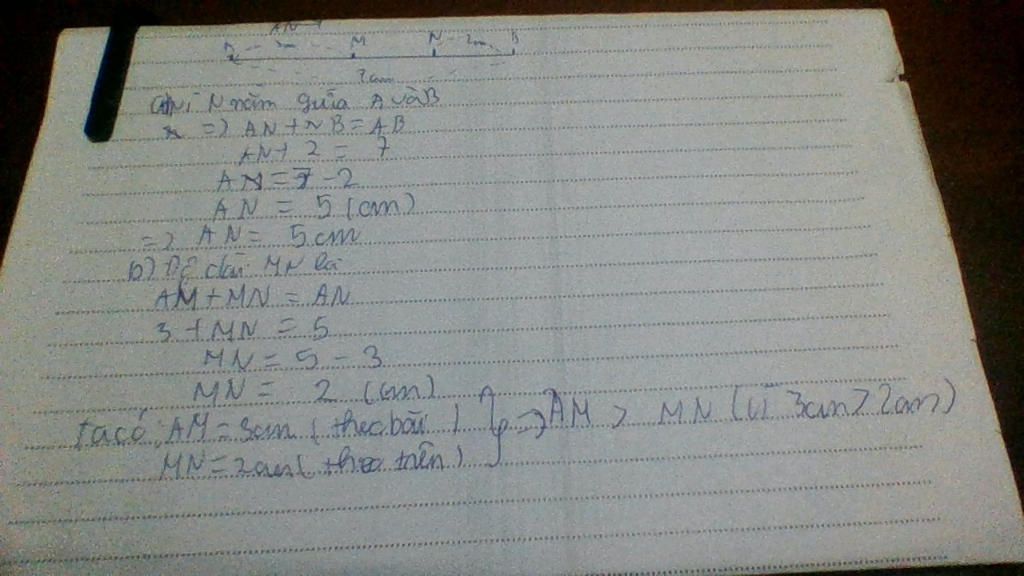 A M N 2cm B
7cm
a) Vì N nằm giữa A và B
=> AN + NB = AB
AN + 2 = 7
AN = 7 - 2
AN = 5 (cm)
=> AN = 5 cm
b) Độ dài MN là
AM + MN = AN
3 + MN = 5
MN = 5 - 3
MN = 2 (cm)
Ta có: AM = 3cm (theo bài) } => AM > MN (vì 3cm > 2cm)
MN = 2cm (theo trên)